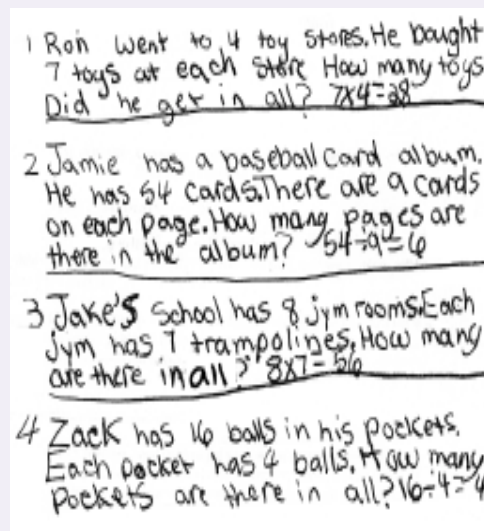 1 Ron went to 4 toy stores. He bought
7 toys at each store How many toys
Did he get in all? 7x4=28
2 Jamie has a baseball card album.
He has 54 cards. There are 9 cards
on each page. How many pages are
there in the album? 54÷9=6
3 Jake's School has 8 jym rooms. Each
jym has 7 trampolines. How many
are there in all? 8x7=56
4 Zack has 16 balls in his pockets.
Each pocket has 4 balls. How many
pockets are there in all? 16÷4=4